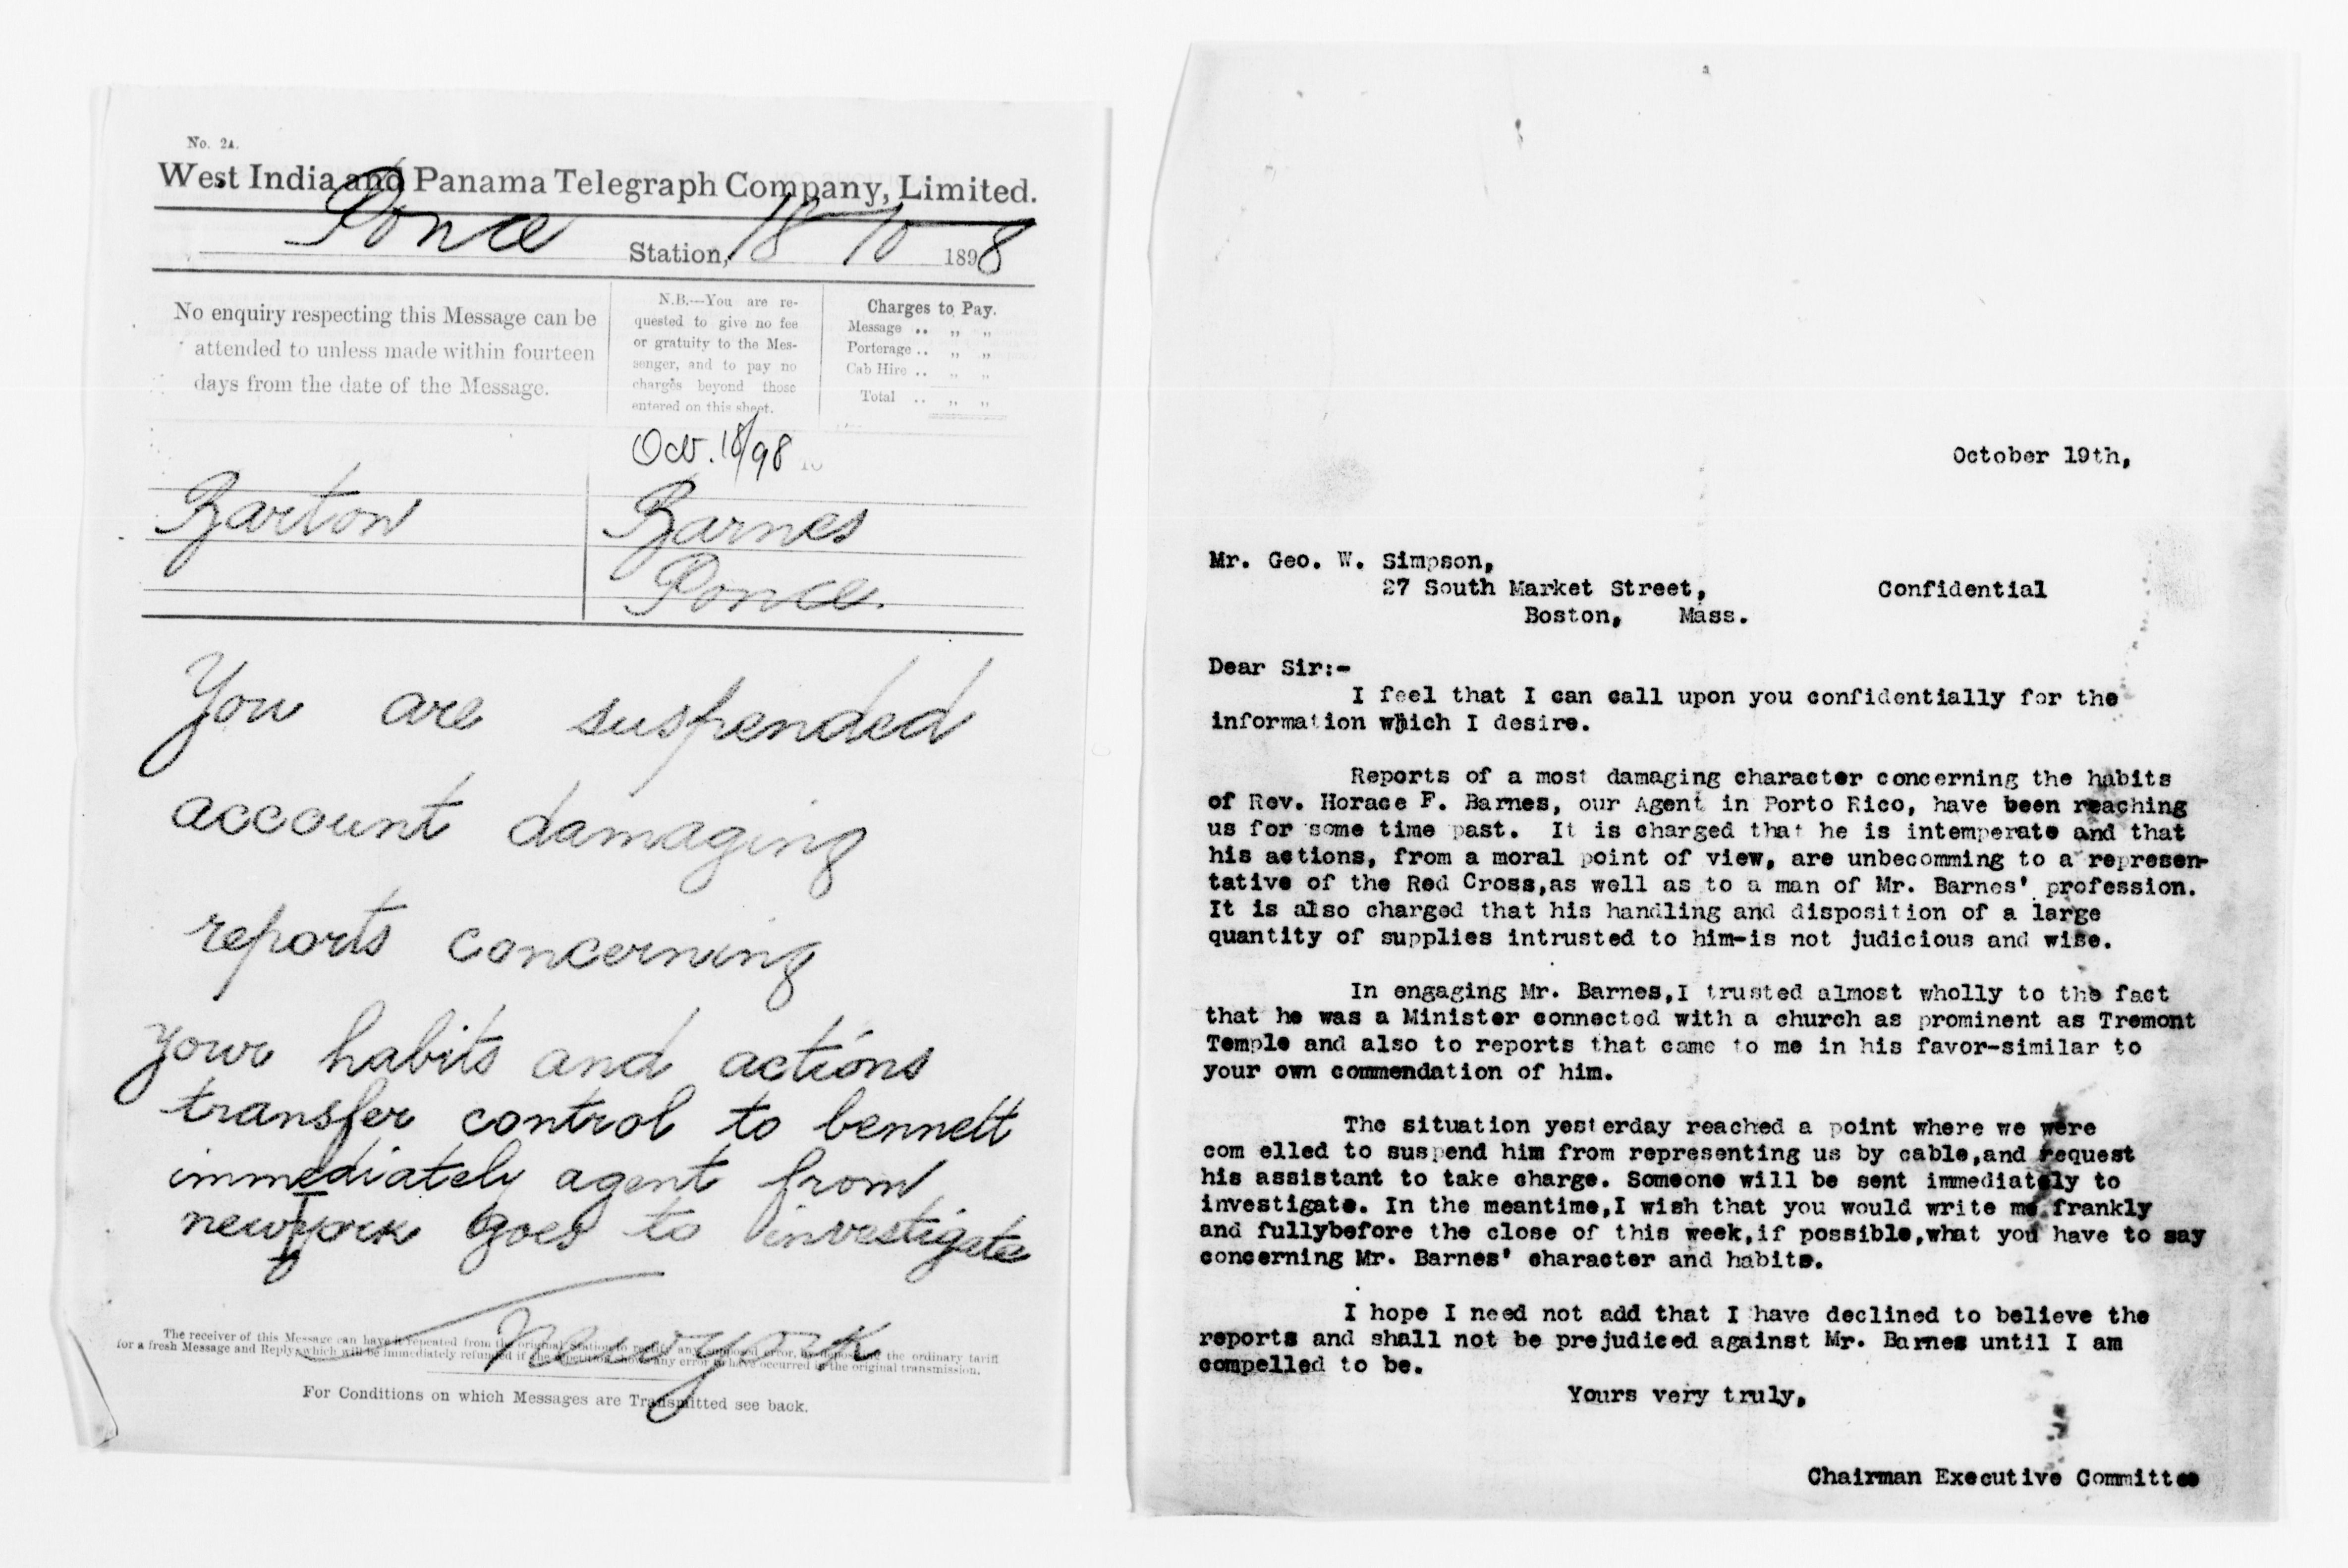 No. 2A.
West India and Panama Telegraph Company, Limited.
Ponce Station, 18/10 1898
No enquiry respecting this Message can be
attended to unless made within fourteen
days from the date of the Message.
N.B.—You are re-
quested to give no fee
or gratuity to the Mes-
senger, and to pay no
charges beyond those
entered on this sheet.
Charges to Pay.
Message .. „ „
Porterage .. „ „
Cab Hire .. „ „
Total .. „ „
Oct. 18/98 To
Barton
Barnes
Ponce.
You are suspended
account damaging
reports concerning
your habits and actions
transfer control to bennett
immediately agent from
newyork goes to investigate
Newyork
The receiver of this Message can have it repeated from the original Station
for a fresh Message and Reply, which will be immediately refunded if any error to have occurred in the original transmission. the ordinary tariff
For Conditions on which Messages are Transmitted see back.
October 19th,
Mr. Geo. W. Simpson,
27 South Market Street, Confidential
Boston, Mass.
Dear Sir:-
I feel that I can call upon you confidentially for the
information which I desire.
Reports of a most damaging character concerning the habits
of Rev. Horace F. Barnes, our Agent in Porto Rico, have been reaching
us for some time past. It is charged that he is intemperate and that
his actions, from a moral point of view, are unbecomming to a represen-
tative of the Red Cross,as well as to a man of Mr. Barnes' profession.
It is also charged that his handling and disposition of a large
quantity of supplies intrusted to him-is not judicious and wise.
In engaging Mr. Barnes,I trusted almost wholly to the fact
that he was a Minister connected with a church as prominent as Tremont
Temple and also to reports that came to me in his favor-similar to
your own commendation of him.
The situation yesterday reached a point where we were
com elled to suspend him from representing us by cable,and request
his assistant to take charge. Someone will be sent immediately to
investigate. In the meantime,I wish that you would write me frankly
and fullybefore the close of this week,if possible,what you have to say
concerning Mr. Barnes' character and habits.
I hope I need not add that I have declined to believe the
reports and shall not be prejudiced against Mr. Barnes until I am
compelled to be.
Yours very truly,
Chairman Executive Committee